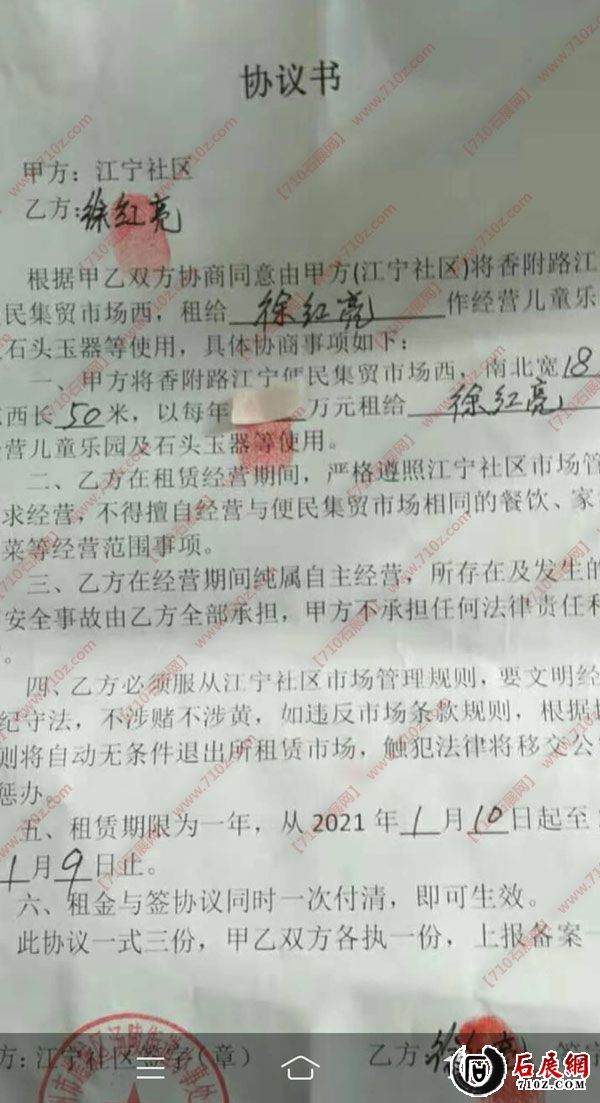 协议书
甲方：江宁社区
乙方：徐红亮
根据甲乙双方协商同意由甲方(江宁社区)将香附路江
民集贸市场西，租给 徐红亮 作经营儿童乐
石头玉器等使用，具体协商事项如下：
一、甲方将香附路江宁便民集贸市场西，南北宽18
西长50米，以每年 万元租给 徐红亮
营儿童乐园及石头玉器等使用。
二、乙方在租赁经营期间，严格遵照江宁社区市场管
求经营，不得擅自经营与便民集贸市场相同的餐饮、家
菜等经营范围事项。
三、乙方在经营期间纯属自主经营，所存在及发生的
安全事故由乙方全部承担，甲方不承担任何法律责任和
。
四、乙方必须服从江宁社区市场管理规则，要文明经
纪守法，不涉赌不涉黄，如违反市场条款规则，根据
则将自动无条件退出所租赁市场，触犯法律将移交公
惩办。
五、租赁期限为一年，从2021年1月10日起至
1月9日止。
六、租金与签协议同时一次付清，即可生效。
此协议一式三份，甲乙双方各执一份，上报备案一
方：江宁社区签字（章） 乙方 徐 亮 签字
石展網
710Z.COM
【710石展网】 www.710z.com